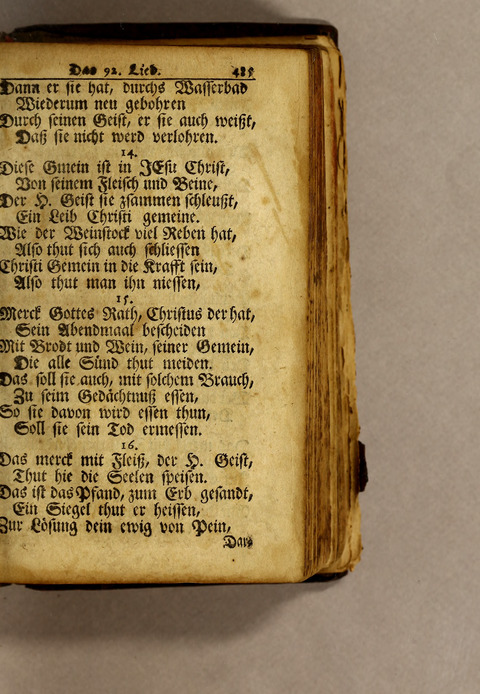 Das 92. Lied. 485
Dann er sie hat, durchs Wasserbad
Wiederum neu gebohren
Durch seinen Geist, er sie auch weißt,
Daß sie nicht werd verlohren.
14.
Diese Gmein ist in JEsu Christ,
Von seinem Fleisch und Beine,
Der H. Geist sie zsammen schleußt,
Ein Leib Christi gemeine.
Wie der Weinstock viel Reben hat,
Also thut sich auch schliessen
Christi Gemein in die Krafft sein,
Also thut man ihn niessen,
15.
Merck Gottes Rath, Christus der hat,
Sein Abendmaal bescheiden
Mit Brodt und Wein, seiner Gemein,
Die alle Sünd thut meiden.
Das soll sie auch, mit solchem Brauch,
Zu seim Gedächtnuß essen,
So sie davon wird essen thun,
Soll sie sein Tod ermessen.
16.
Das merck mit Fleiß, der H. Geist,
Thut hie die Seelen speisen.
Das ist das Pfand, zum Erb gesandt,
Ein Siegel thut er heissen,
Zur Lösung dein ewig von Pein,
Dar-